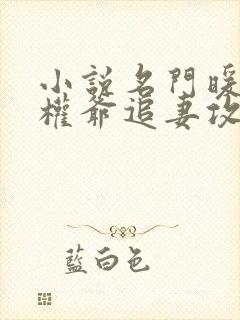 小說名門暖
權爺追妻攻
藍白色